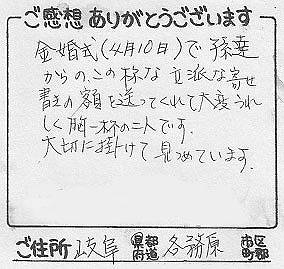 ご感想ありがとうございます
金婚式(4月10日)で孫達
からの、この様な立派な寄せ
書きの額を送ってくれて大変うれ
しく胸一杯の二人です。
大切に掛けて見つめています。
ご住所 岐阜 都道府県 各務原 市区町郡